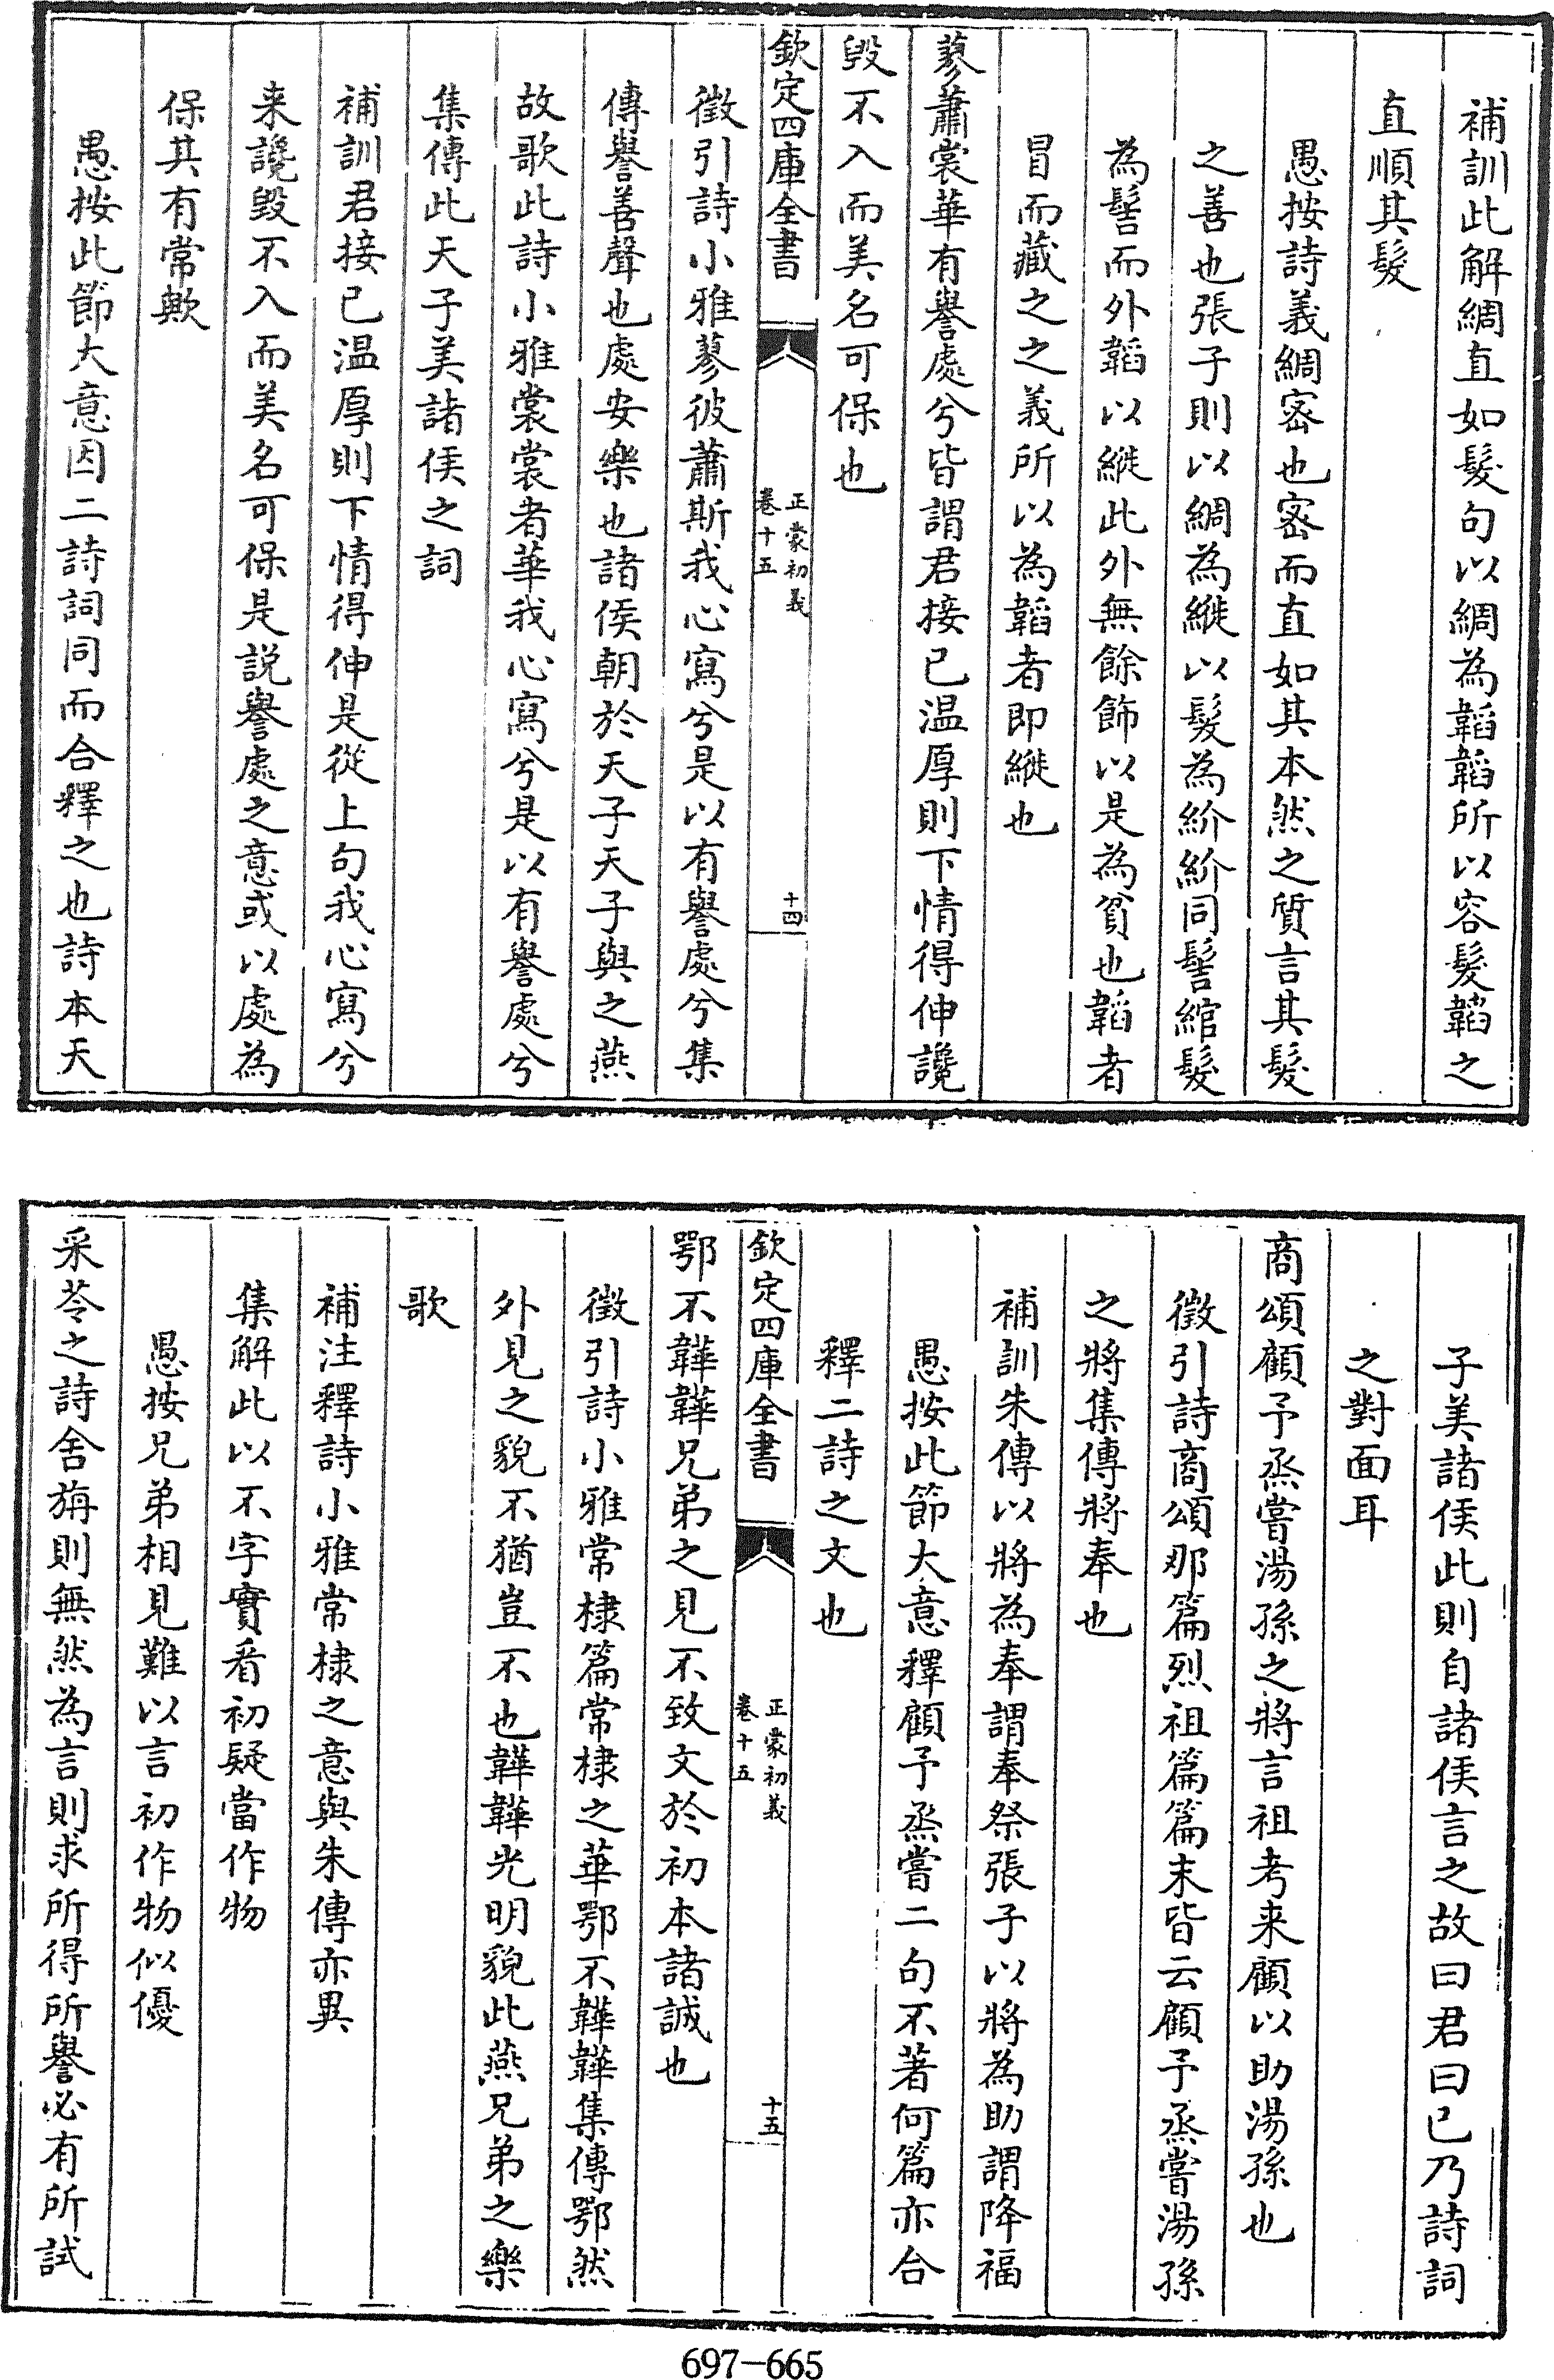 補訓此解綢直如髮句以綢為韜韜所以容髮韜之
直順其髮
愚按詩義綢宻也宻而直如其本然之質言其髮
之善也張子則以綢為縰以髮為紒紒同髻綰髮
為髻而外韜以縰此外無餘飾以是為貧也韜者
冒而藏之之義所以為韜者即縰也
蓼蕭裳華有譽處兮皆謂君接已温厚則下情得伸讒
毁不入而美名可保也
欽定四庫全書
正蒙初義
卷十五
十四
徵引詩小雅蓼彼蕭斯我心寫兮是以有譽處兮集
傳譽善聲也處安樂也諸侯朝於天子天子與之燕
故歌此詩小雅裳裳者華我心寫兮是以有譽處兮
集傳此天子美諸侯之詞
補訓君接已温厚則下情得伸是從上句我心寫兮
来讒毁不入而美名可保是説譽處之意或以處為
保其有常歟
愚按此節大意因二詩詞同而合釋之也詩本天
子美諸侯此則自諸侯言之故曰君曰已乃詩詞
之對面耳
商頌顧予烝嘗湯孫之將言祖考来顧以助湯孫也
徵引詩商頌那篇烈祖篇篇末皆云顧予烝嘗湯孫
之將集傳將奉也
補訓朱傳以將為奉謂奉祭張子以將為助謂降福
愚按此節大意釋顧予烝嘗二句不著何篇亦合
釋二詩之文也
欽定四庫全書
正蒙初義
卷十五
十五
鄂不韡韡兄弟之見不致文於初本諸誠也
徵引詩小雅常棣篇常棣之華鄂不韡韡集傳鄂然
外見之貌不猶豈不也韡韡光明貌此燕兄弟之樂
歌
補注釋詩小雅常棣之意與朱傳亦異
集解此以不字實看初疑當作物
愚按兄弟相見難以言初作物似優
采苓之詩舍旃則無然為言則求所得所譽必有所試
697-665